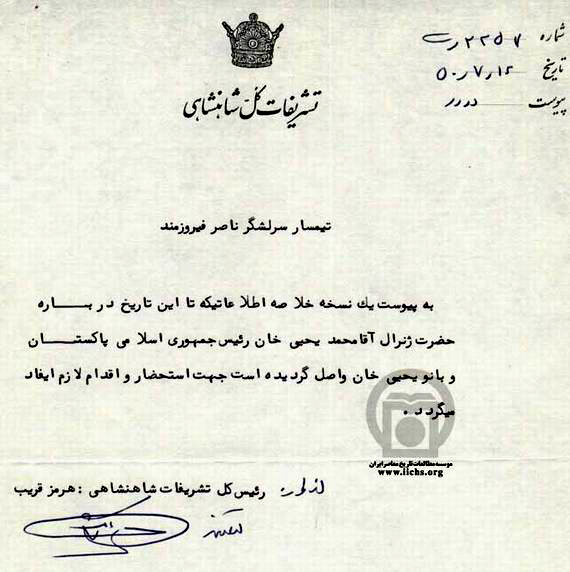 شماره ۲۲۵۷
تاریخ
پیوست دارد
تشریفات کل شاهنشاهی
تیمسار سرلشگر ناصر فیروزمند
به پیوست یك نسخه خلاصه اطلاعاتیکه تا این تاریخ در بـــاره
حضرت ژنرال آقامحمد یحیی خان رئیس جمهوری اسلامی پاکستان
و بانو یحیی خان واصل گردیده است جهت استحضار و اقدام لازم ایفاد
میگردد .
موسسه مطالعات تاریخ معاصر ایران
www.iichs.org
از طرف رئیس کل تشریفات شاهنشاهی : هرمز قریب